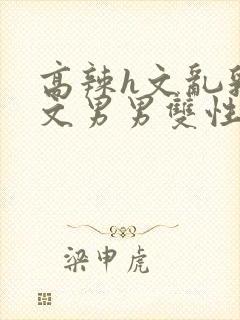 高辣h文亂乳
文男男雙性
梁申虎